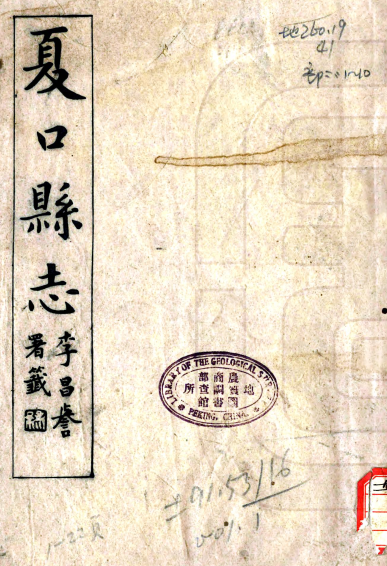 夏口縣志
李昌譽
署籤
地260.19
41
LIBRARY OF THE GEOLOGICAL
農商部
地質調查所
圖書館
PEKING, CHINA.
vol. 1
1-22頁